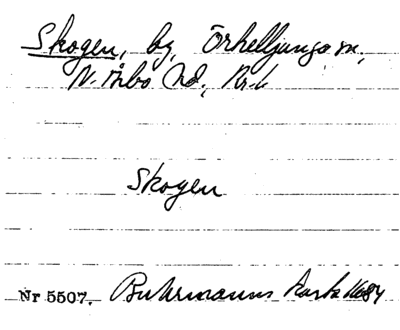 Skogen, by, Örkelljunga sn,
N. Åsbo hd., Kr. l.
Skogen
Nr 5507. Buhrmanns karta 1684